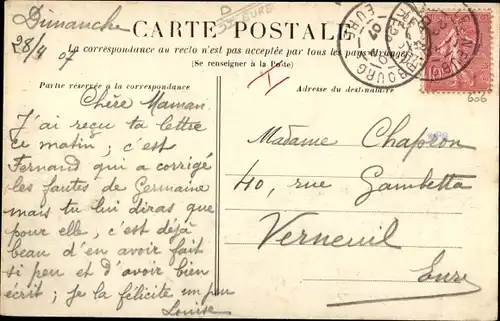 Dimanche
28/4 07
CARTE POSTALE
La correspondance au recto n'est pas acceptée par tous les pays étrangers
(Se renseigner à la Poste)
Partie réservée à la correspondance
Adresse du destinataire
Chère Maman
J'ai reçu ta lettre
ce matin ; c'est
Fernand qui a corrigé
les fautes de Germaine
mais tu lui diras que
pour elle, c'est déjà
beau d'en avoir fait
si peu et d'avoir bien
écrit ; je la félicite un peu
Louise
Madame Chapron
40, rue Gambetta
Verneuil
Eure
EURE
606